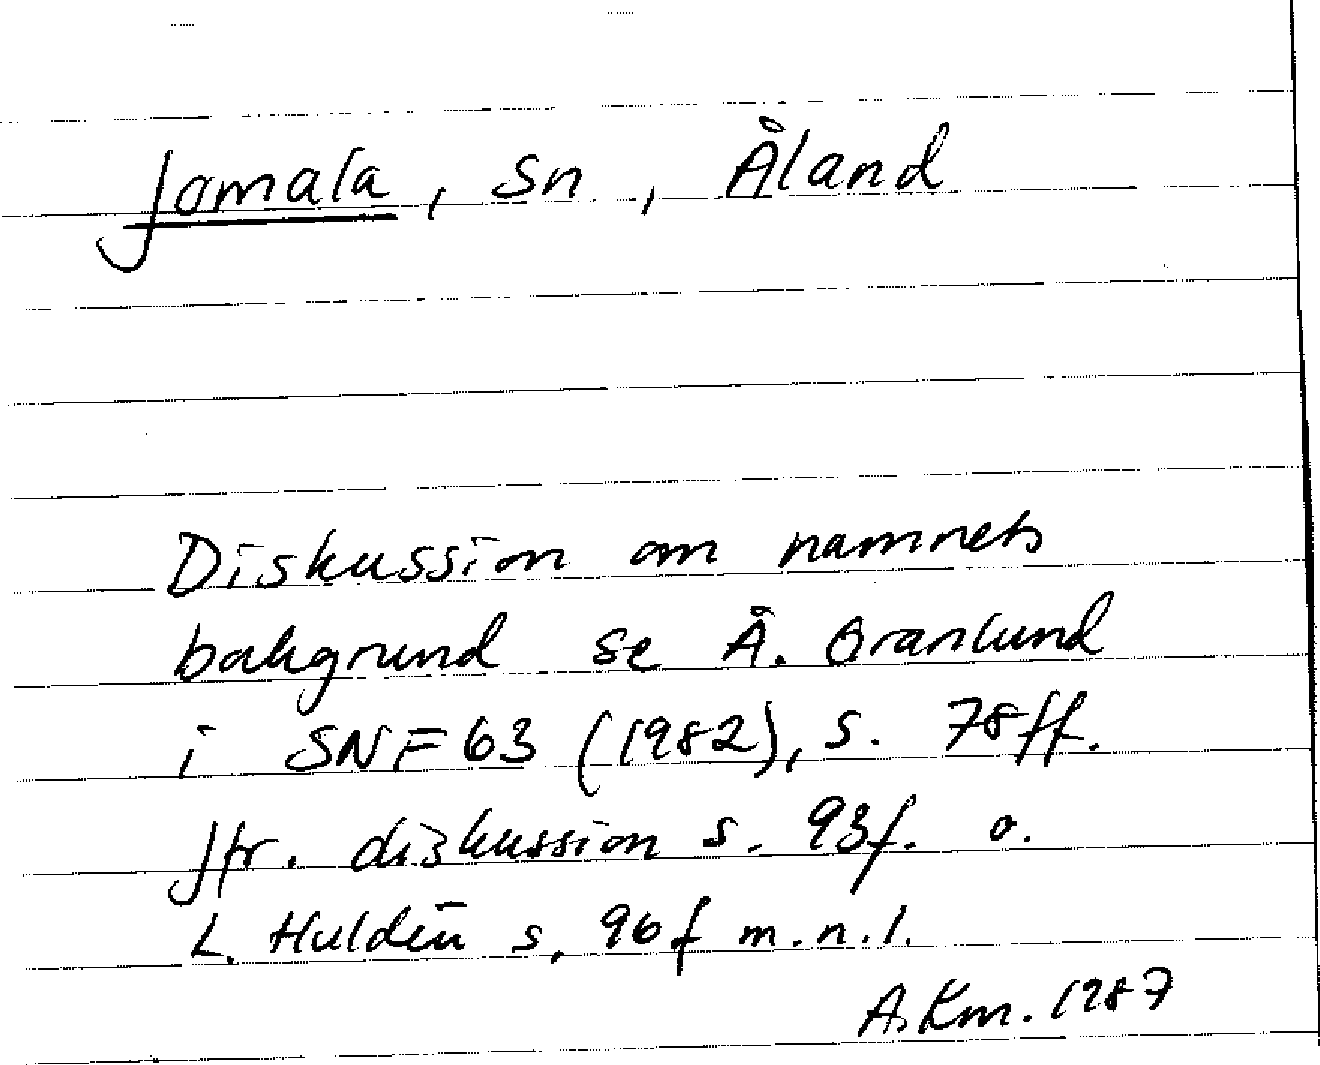 Jomala, sn, Åland
Diskussion om namnets
bakgrund se Å. Granlund
i SNF 63 (1982), s. 78ff.
Jfr. diskussion s. 93f. o.
L. Huldén s. 96f m.n.l.
A. Km. 1987